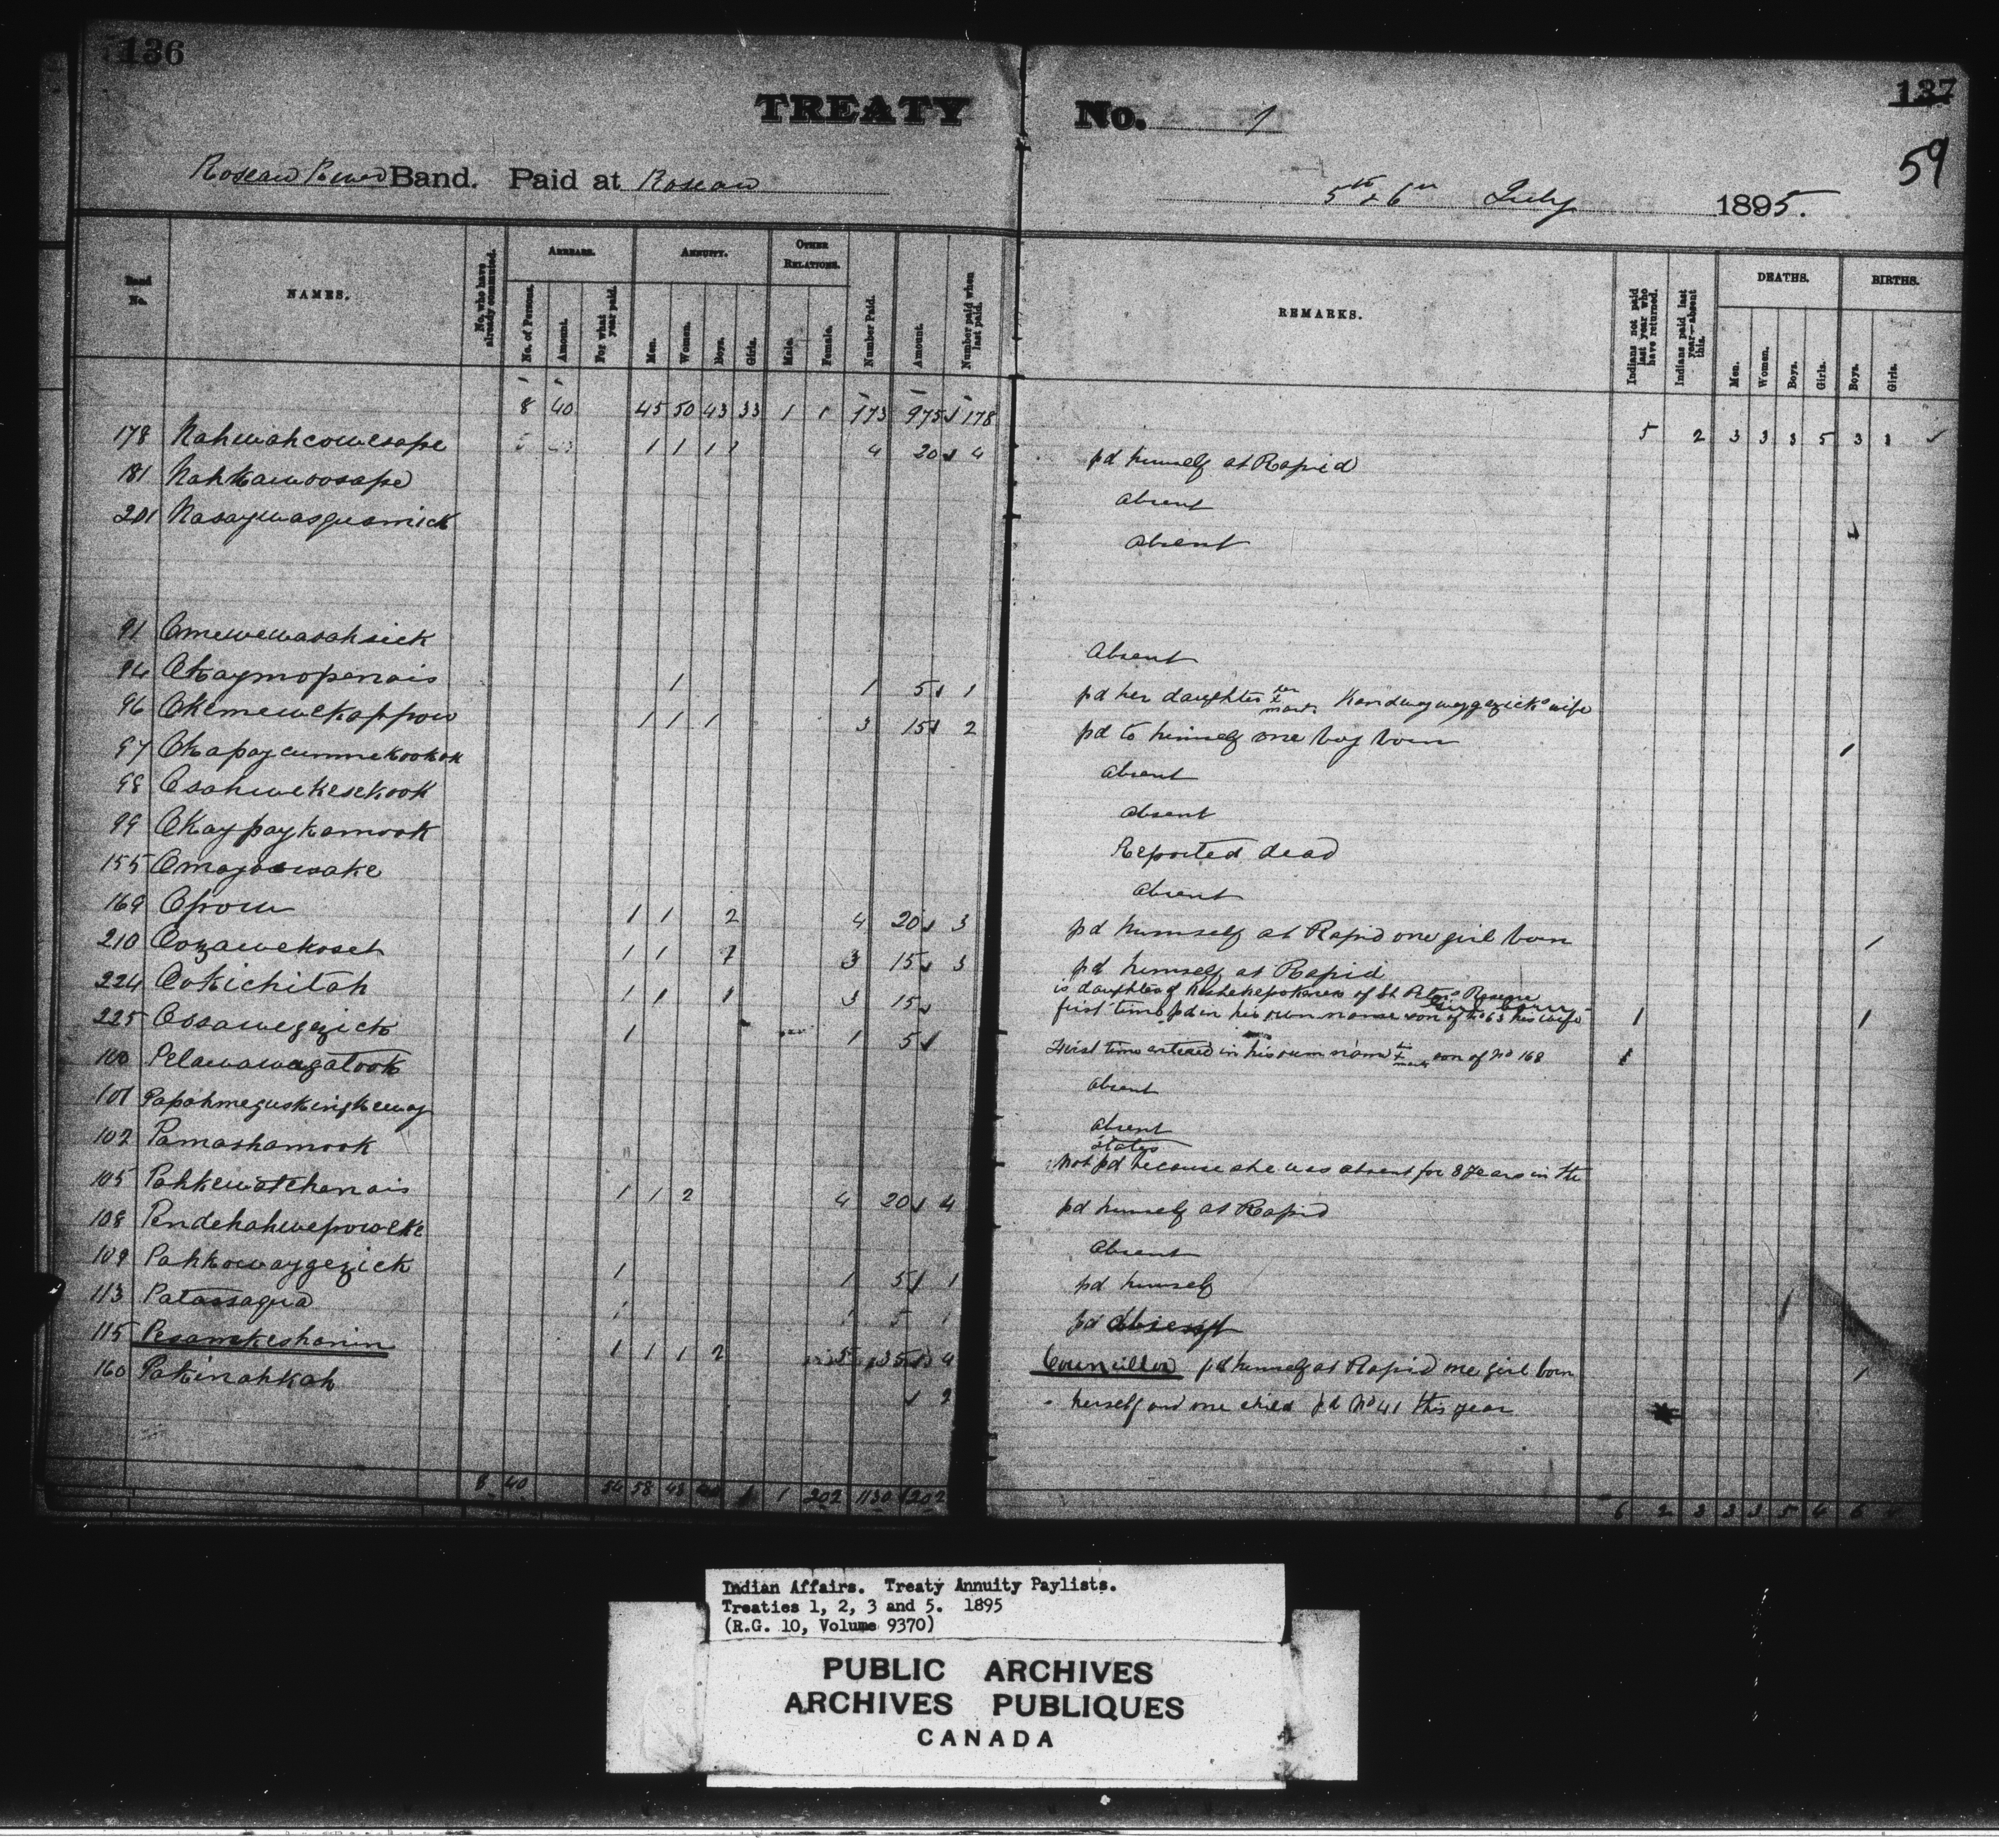 136
137
59
TREATY No. 1
Roseau River Band. Paid at Roseau 5th & 6th July 1895.
Band No.
NAMES.
No. who have already commuted.
ARREARS.
No. of Persons.
Amount.
For what year paid.
ANNUITY.
Men.
Women.
Boys.
Girls.
OTHER RELATIONS.
Male.
Female.
Number Paid.
Amount.
Number paid when last paid.
REMARKS.
Indians not paid last year who have returned.
Indians paid last year—absent this.
DEATHS.
Men.
Women.
Boys.
Girls.
BIRTHS.
Boys.
Girls.
8 40 45 50 43 33 1 1 173 975 178 5 2 3 3 3 5 3 3
178 Nahwahcowesape 1 1 1 1 4 20 4 pd himself at Rapid
181 Nahkawoosape absent
201 Nasaywasgusmick absent
91 Omewewasahsick Absent
94 Okaymopenais 1 1 5 1 pd her daughter her x mark wife
96 Okemewekappow 1 1 1 3 15 2 pd to himself one boy born 1
97 Okapaycummekookok absent
98 Osahwekesekook absent
99 Okaypaykamook Reported dead
155 absent
169 Opow 1 1 2 4 20 3 pd himself at Rapid one girl born 1
210 Oozawekoset 1 1 1 3 15 3 pd himself at Rapid
is daughter of of St Peters
224 Ookichitah 1 1 1 3 15 first time pd in his own name son of No 63 his wife 1 1
225 Ossawegezick 1 1 5 First time entered in his own name x mark son of No 168 1
100 Pelawawagatook absent
101 absent
States
102 Pamashamook Not pd because she was absent for 8 years in the
105 Pahkewatchenais 1 1 2 4 20 4 pd himself at Rapid
108 Pendehahwepoweke Absent
109 Pahkowaygezick 1 1 5 1 pd himself
113 Patassagua 1 1 5 1 pd
115 Pesamkeshanin 1 1 1 2 5 4 Councillor pd himself at Rapid one girl born 1
160 Pakinahkah 2 herself and one child pd No 41 this year
8 40 54 58 43 1 202 1130 202 6 2 3 3 3 5 6
Indian Affairs. Treaty Annuity Paylists.
Treaties 1, 2, 3 and 5. 1895
(R.G. 10, Volume 9370)
PUBLIC ARCHIVES
ARCHIVES PUBLIQUES
CANADA